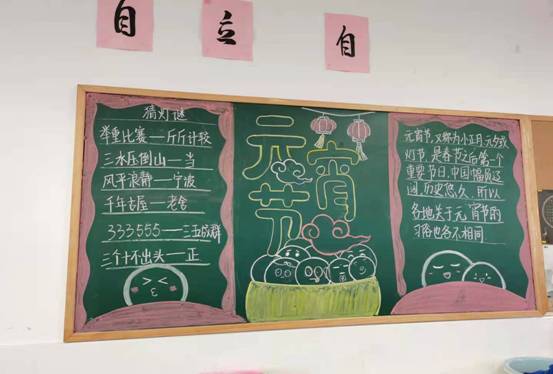 自
立
自
猜灯谜
举重比赛—斤斤计较
三水压倒山—当
风平浪静—宁波
千年古屋—老舍
333555—三五成群
三个十不出头—正
元宵
节
元宵节,又称为小正月、元夕或
灯节,是春节之后第一个
重要节日,中国幅员辽
阔,历史悠久,所以
各地关于元宵节的
习俗也各不相同